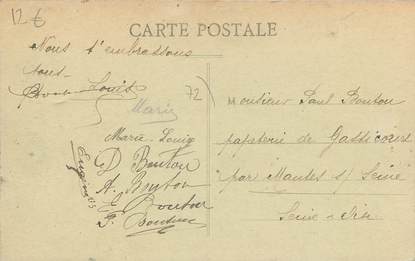 12€
CARTE POSTALE
Nous t'embrassons
tous
Louis
Marie
72
Marie-Louise
D Bouton
A. Bouton
E Bouton
Eugénie
Monsieur Paul Bouton
papeterie de Gassicourt
par Mantes s/ Seine
Seine-et-Oise